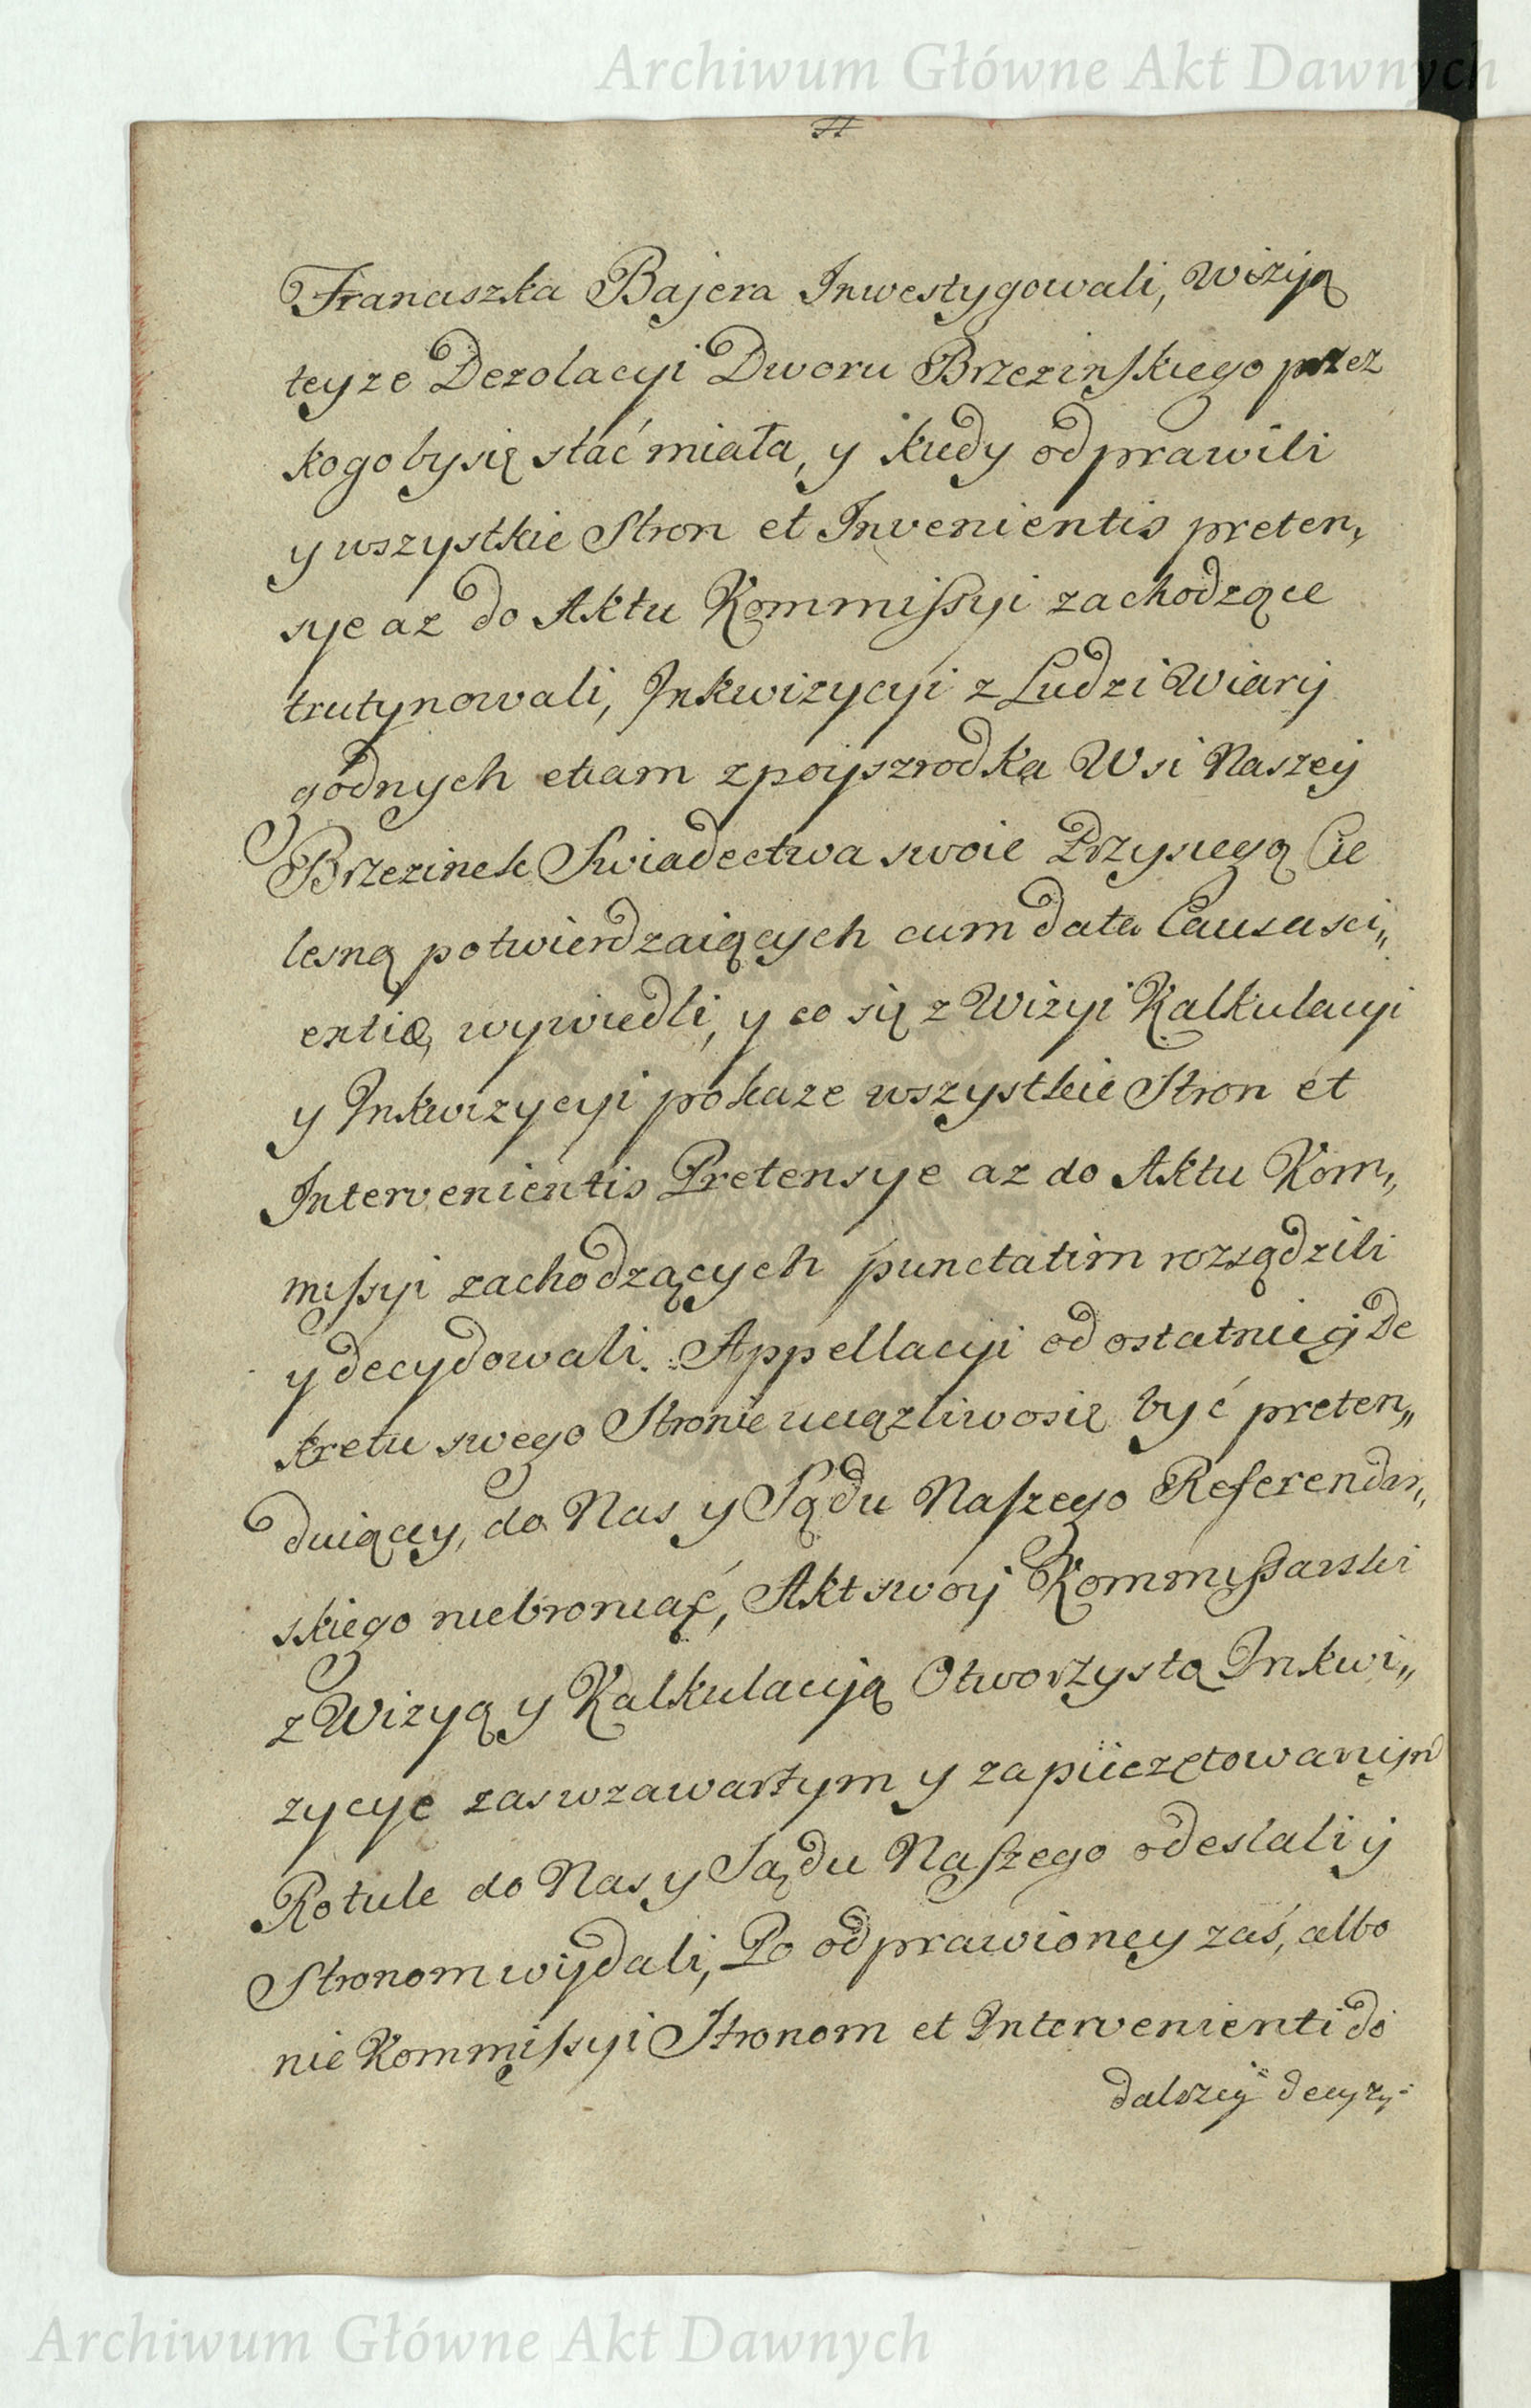 Archiwum Główne Akt Dawnych
Franciszka Bajera Inwestygowali, Wizyą
teyze Dezolacyi Dworu Brzezinskiego przez
kogo by się stać miała, y kiedy odprawili
y wszystkie Stron et Invenientis preten,
sye az do Aktu Kommissyi zachodzące
trutynowali, Inkwizycyi z Ludzi Wiary
godnych etiam z poyszrodka Wsi Naszey
Brzezinek Swiadectwa swoie Przysięgą Cie
lesną potwierdzaiących cum data Causa sci„
entiæ, wywiedli, y co się z Wizyi Kalkulacyi
y Inkwizycyi pokaze wszystkie Stron et
Intervenientis Pretensye az do Aktu Kom,
missyi zachodzących punctatim rozsądzili
y decydowali. Appellacyi od ostatniey De
kretu swego Stronie uciązliwosię być preten„
duiącey, do Nas y Sądu Naszego Referendar„
skiego niebroniąc, Akt swoy Kommissarski
z Wizyą y Kalkulacyją Otworzystą Inkwi„
zycye zas w zawartym y zapieczętowanym
Rotule do Nas y Sądu Naszego odeslali y
Stronom wydali, Po odprawioney zaś, albo
nie Kommissyi Stronom et Intervenienti do
dalszey decyzy-
Archiwum Główne Akt Dawnych